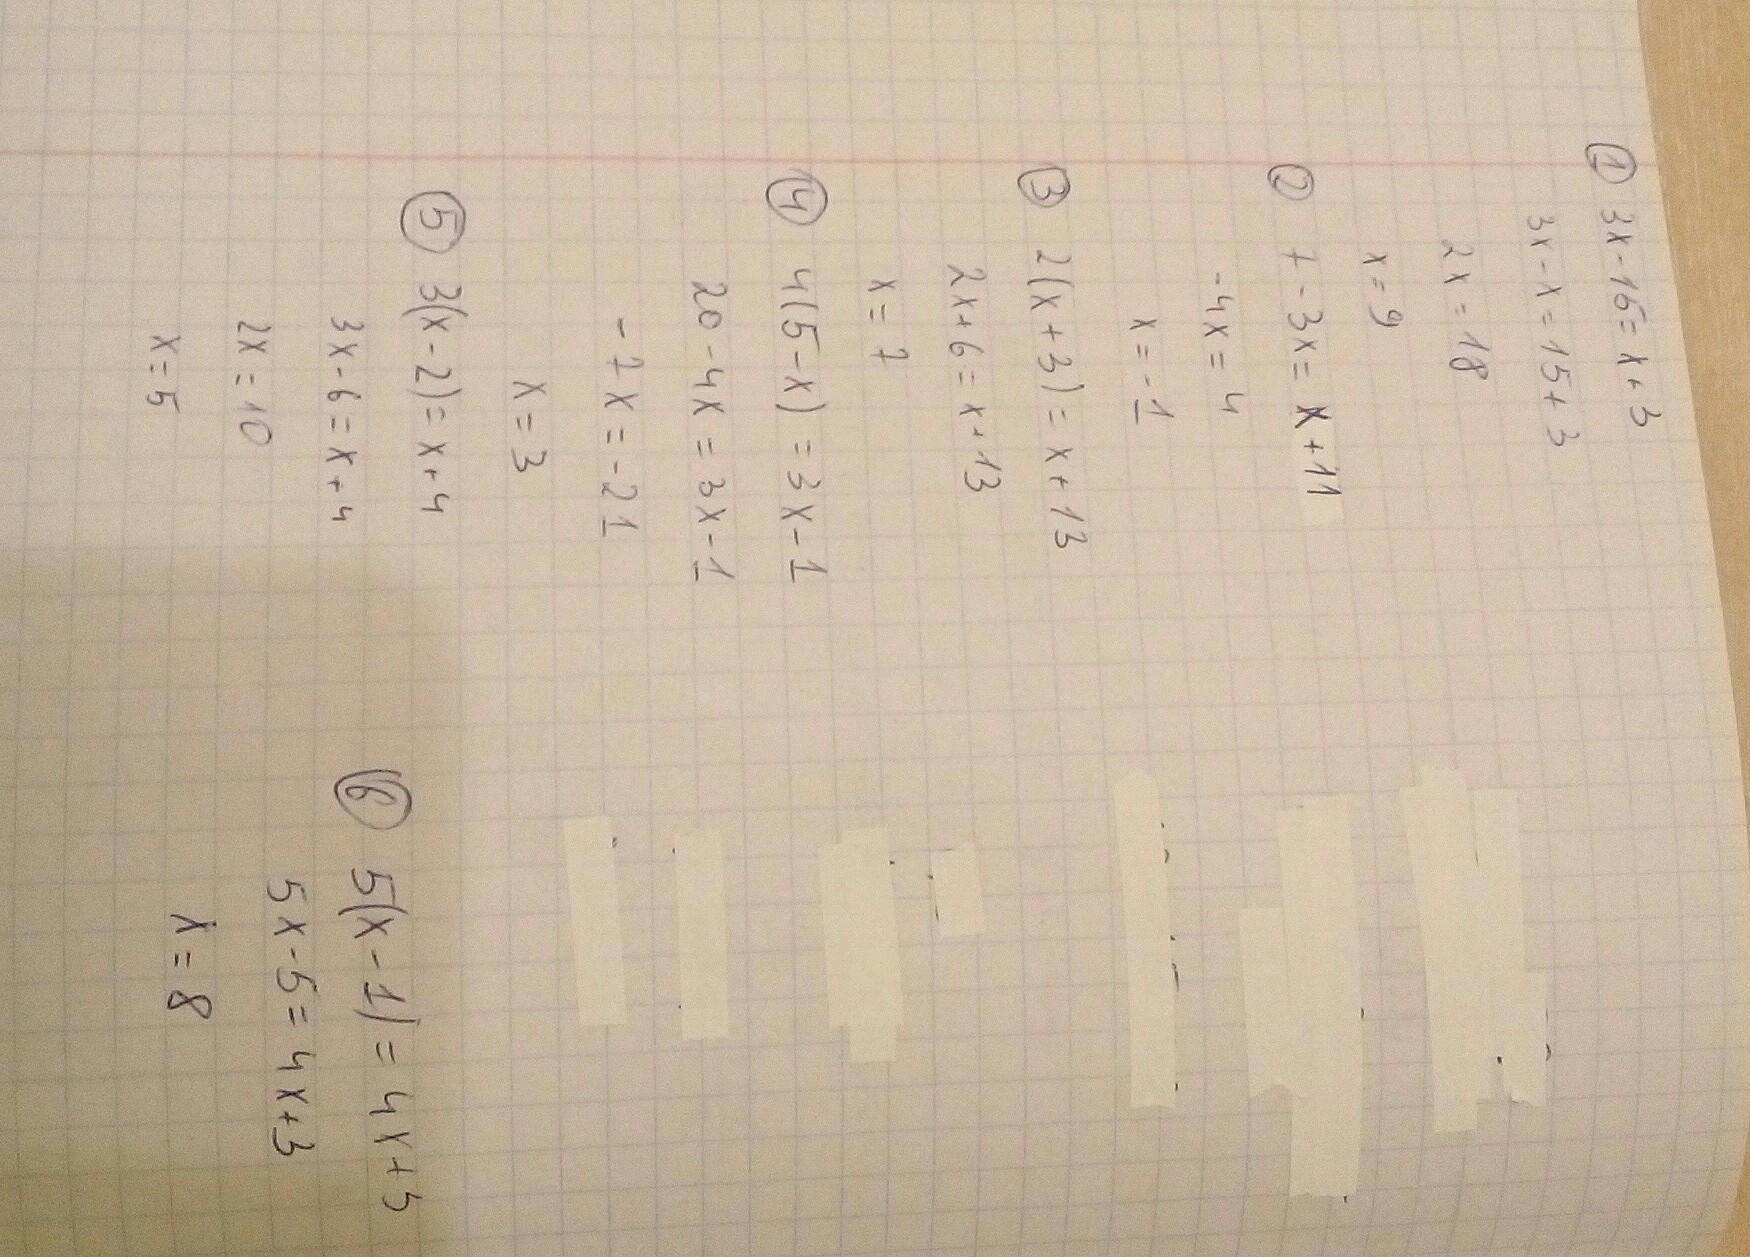 ① 3x-15=x+3
3x-x=15+3
2x=18
x=9
② 7-3x=x+11
-4x=4
x=-1
③ 2(x+3)=x+13
2x+6=x+13
x=7
④ 4(5-x)=3x-1
20-4x=3x-1
-7x=-21
x=3
⑤ 3(x-2)=x+4
3x-6=x+4
2x=10
x=5
⑥ 5(x-1)=4x+3
5x-5=4x+3
x=8